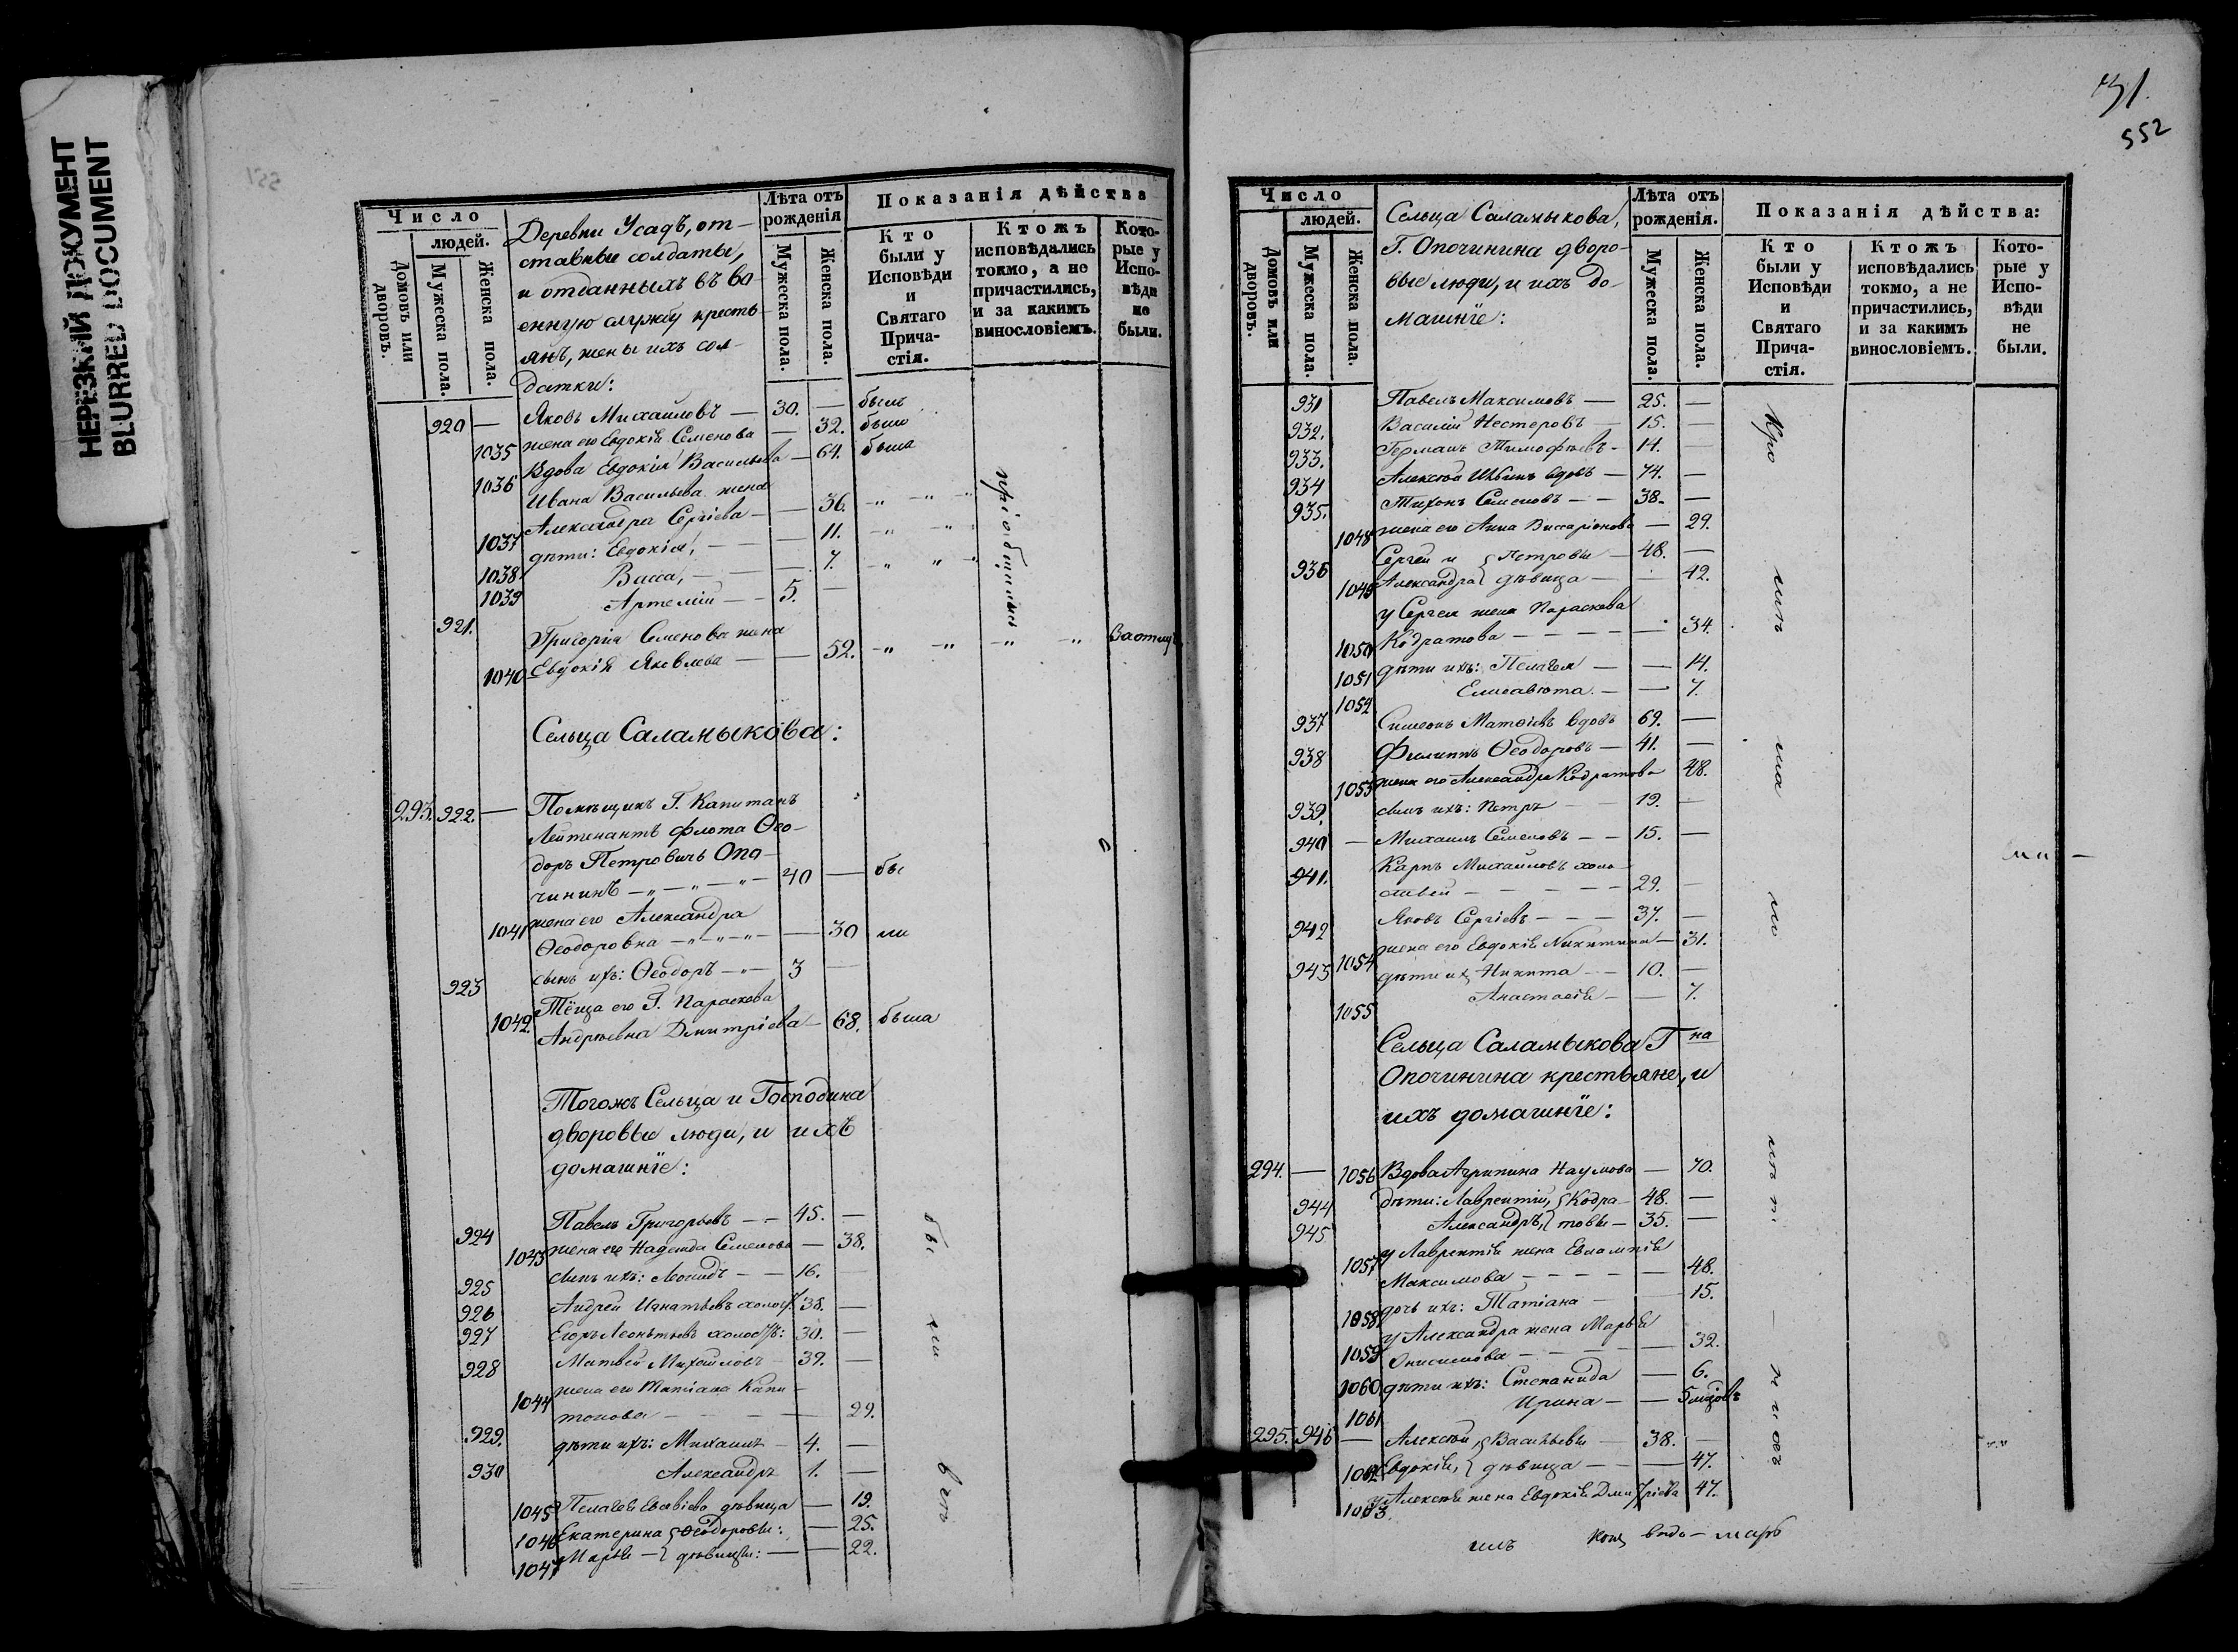 НЕРЕЗКИЙ ДОКУМЕНТ
BLURRED DOCUMENT
Число
людей.
Домовъ или дворовъ.
Мужеска пола.
Женска пола.
Деревни Усадъ, от-
ставные солдаты,
и отданныхъ въ во-
енную службу кресть-
янъ, жены ихъ сол-
датки:
Лѣта отъ рожденія
Мужеска пола.
Женска пола.
Показанія дѣйства
Кто были у Исповѣди и Святаго Прича-стія.
Ктожъ исповѣдались токмо, а не причастились, и за какимъ винословіемъ.
Кото-рые у Испо-вѣди не были.
920 — Яковъ Михайловъ — 30. — былъ
1035 жена его Евдокія Семенова — 32. была
1036 Вдова Евдокія Васильева — 64. была
Ивана Васильева жена
1037 Александра Сергіева — 36.
1038 дѣти: Евдокія, — 11.
1039 Васса, — 7.
921. Артемій — 5. —
Григорія Семенова жена
1040 Евдокія Яковлева — 52.
Сельца Саламыкова:
293. 922. — Помѣщикъ Г. Капитанъ
Лейтенантъ флота Ѳео-
доръ Петровичъ Опо-
чининъ — 40 —
1041 жена его Александра
Ѳеодоровна — 30
923 сынъ ихъ: Ѳеодоръ — 3 —
1042. Тёща его Г. Параскева
Андреевна Дмитріева — 68. была
Тогожъ Сельца и Господина
дворовые люди, и ихъ
домашніе:
924 Павелъ Григорьевъ — 45. —
1043 жена его Надежда Семенова — 38.
925 сынъ ихъ: Леонидъ — 16.
926 Андрей Игнатьевъ холост. 38. —
927 Егоръ Леонтьевъ холостъ: 30. —
928 Матвей Михайловъ — 39. —
1044 жена его Татіана Капи-
тонова — 29.
929. дѣти ихъ: Михаилъ — 4. —
930 Александръ 1. —
1045 Пелагея Евсевіева дѣвица — 19.
1046 Екатерина Ѳеодоровы: — 25.
1047 Марія — дѣвицы: — 22.
31.
552
Число
людей.
Домовъ или дворовъ.
Мужеска пола.
Женска пола.
Сельца Саламыкова,
Г. Опочинина дворо-
вые люди, и ихъ до-
машніе:
Лѣта отъ рожденія.
Мужеска пола.
Женска пола.
Показанія дѣйства:
Кто были у Исповѣди и Святаго Прича-стія.
Ктожъ исповѣдались токмо, а не причастились, и за какимъ винословіемъ.
Кото-рые у Испо-вѣди не были.
931 Павелъ Максимовъ — 25. —
932. Василій Нестеровъ — 15. —
933. Германъ Тимофѣевъ — 14. —
934 Алексѣй Ильинъ вдовъ — 74. —
935. Тихонъ Семеновъ — 38. —
1048 жена его Анна Виссаріонова — 29.
936 Сергей и Петровы — 48. —
1049 Александра дѣвица — 42.
у Сергея жена Параскева
1050 Кодратова — 34.
1051 дѣти ихъ: Пелагея — 14.
1052 Елисавета. — 7.
937 Симеонъ Матвіевъ вдовъ 69. —
938 Филиппъ Ѳеодоровъ — 41. —
1053 жена его Александра Кодратова 48.
939. сынъ ихъ: Петръ — 19. —
940 — Михаилъ Семеновъ — 15. —
941. Карпъ Михайловъ холо-
стый — 29. —
942 Яковъ Сергіевъ — 37. —
1054 жена его Евдокія Никитина — 31.
943 дѣти ихъ Никита — 10. —
1055 Анастасія — 7.
Сельца Саламыкова Г на
Опочинина крестьяне, и
ихъ домашніе:
294. — 1056 Вдова Агрипина Наумова — 70.
944 дѣти: Лаврентій, Кодра- 48. —
945 Александръ, товы — 35. —
1057 у Лаврентія жена Евлампія
Максимова — 48.
1058 дочь ихъ: Татіана — 15.
у Александра жена Марья
1059 Онисимова — 32.
1060 дѣти ихъ: Степанида — 6.
1061 Ирина — 5 мцовъ
295. 946 — Алексѣй, Васильевы — 38. —
1062 Евдокія, дѣвица — 47.
1063. у Алексѣя жена Евдокія Дмитріева 47.